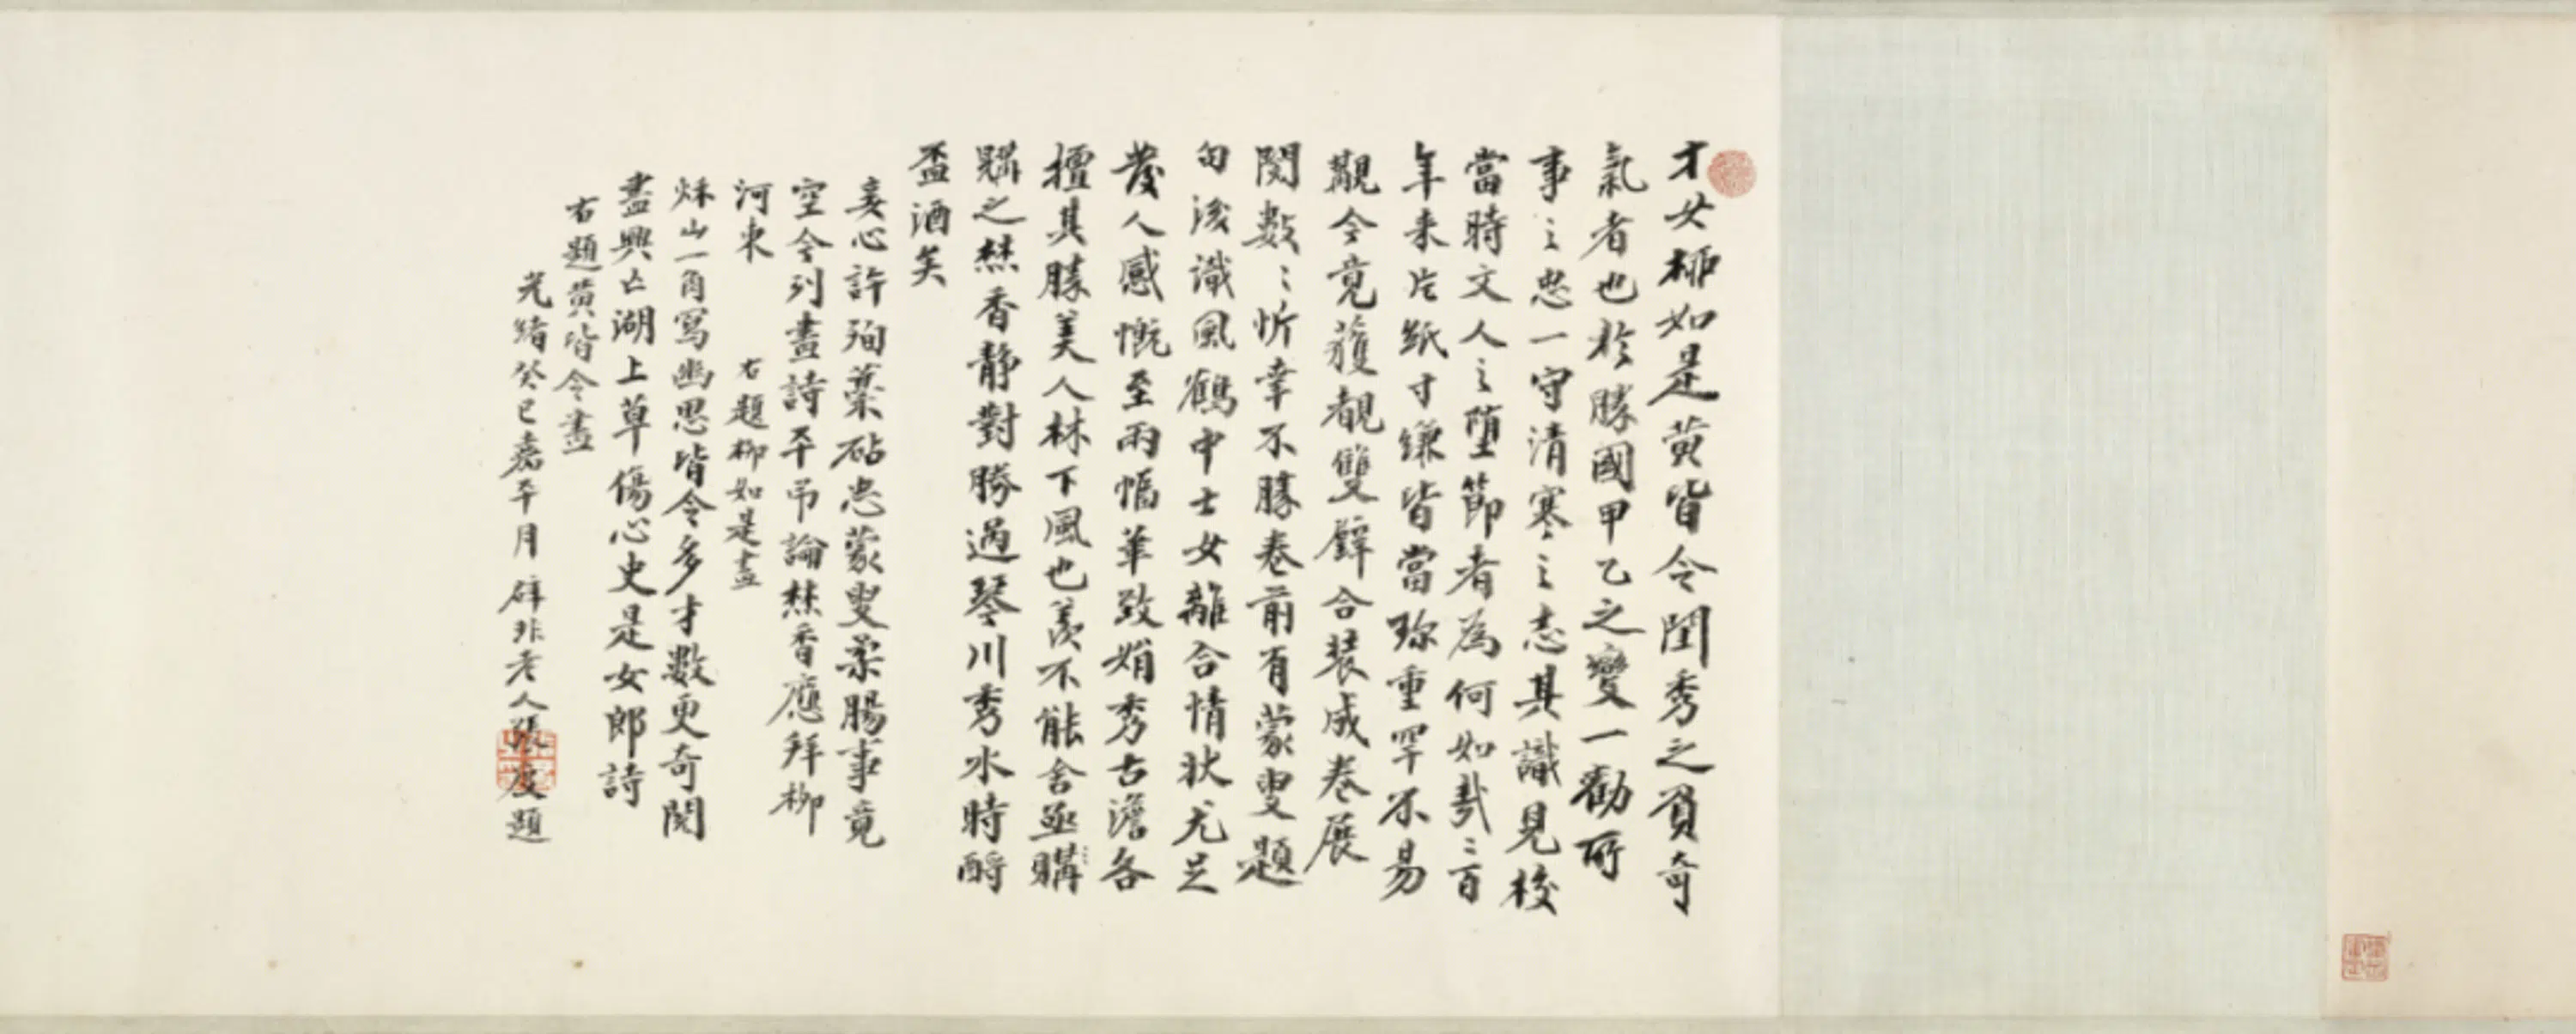 才女柳如是黃皆令閨秀之負奇
氣者也於勝國甲乙之變一勸所
事之忠一守清寒之志其識見校
當時文人之墮節者為何如哉二百
年来片紙寸縑皆當珍重罕不易
覯今竟獲覩雙璧合裝成卷展
閱數數忻幸不勝卷前有蒙叟題
句後識風鶴中士女離合情狀尤足
發人感慨至兩幅筆致娟秀古澹各
擅其勝美人林下風也羨不能舍亟購
歸之焚香靜對勝過琴川秀水時酹
盃酒矣
妾心許殉藁砧忠蒙叟柔腸事竟
空今列畫詩平弔論焚香應拜柳
河東 右題柳如是畫
秌山一角寫幽思皆令多才數更奇閱
盡興亡湖上草傷心史是女郎詩
右題黃皆令畫
光緒癸巳嘉平月辟非老人張度題